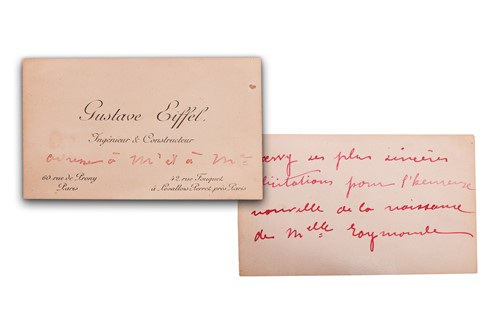 Gustave Eiffel.
Ingénieur & Constructeur
à Mr et à Mme
60 rue de Prony
Paris
42, rue Fouquet
à Levallois Perret, près Paris
ses plus sincères
félicitations pour l'heureuse
nouvelle de la naissance
de Melle Raymonde